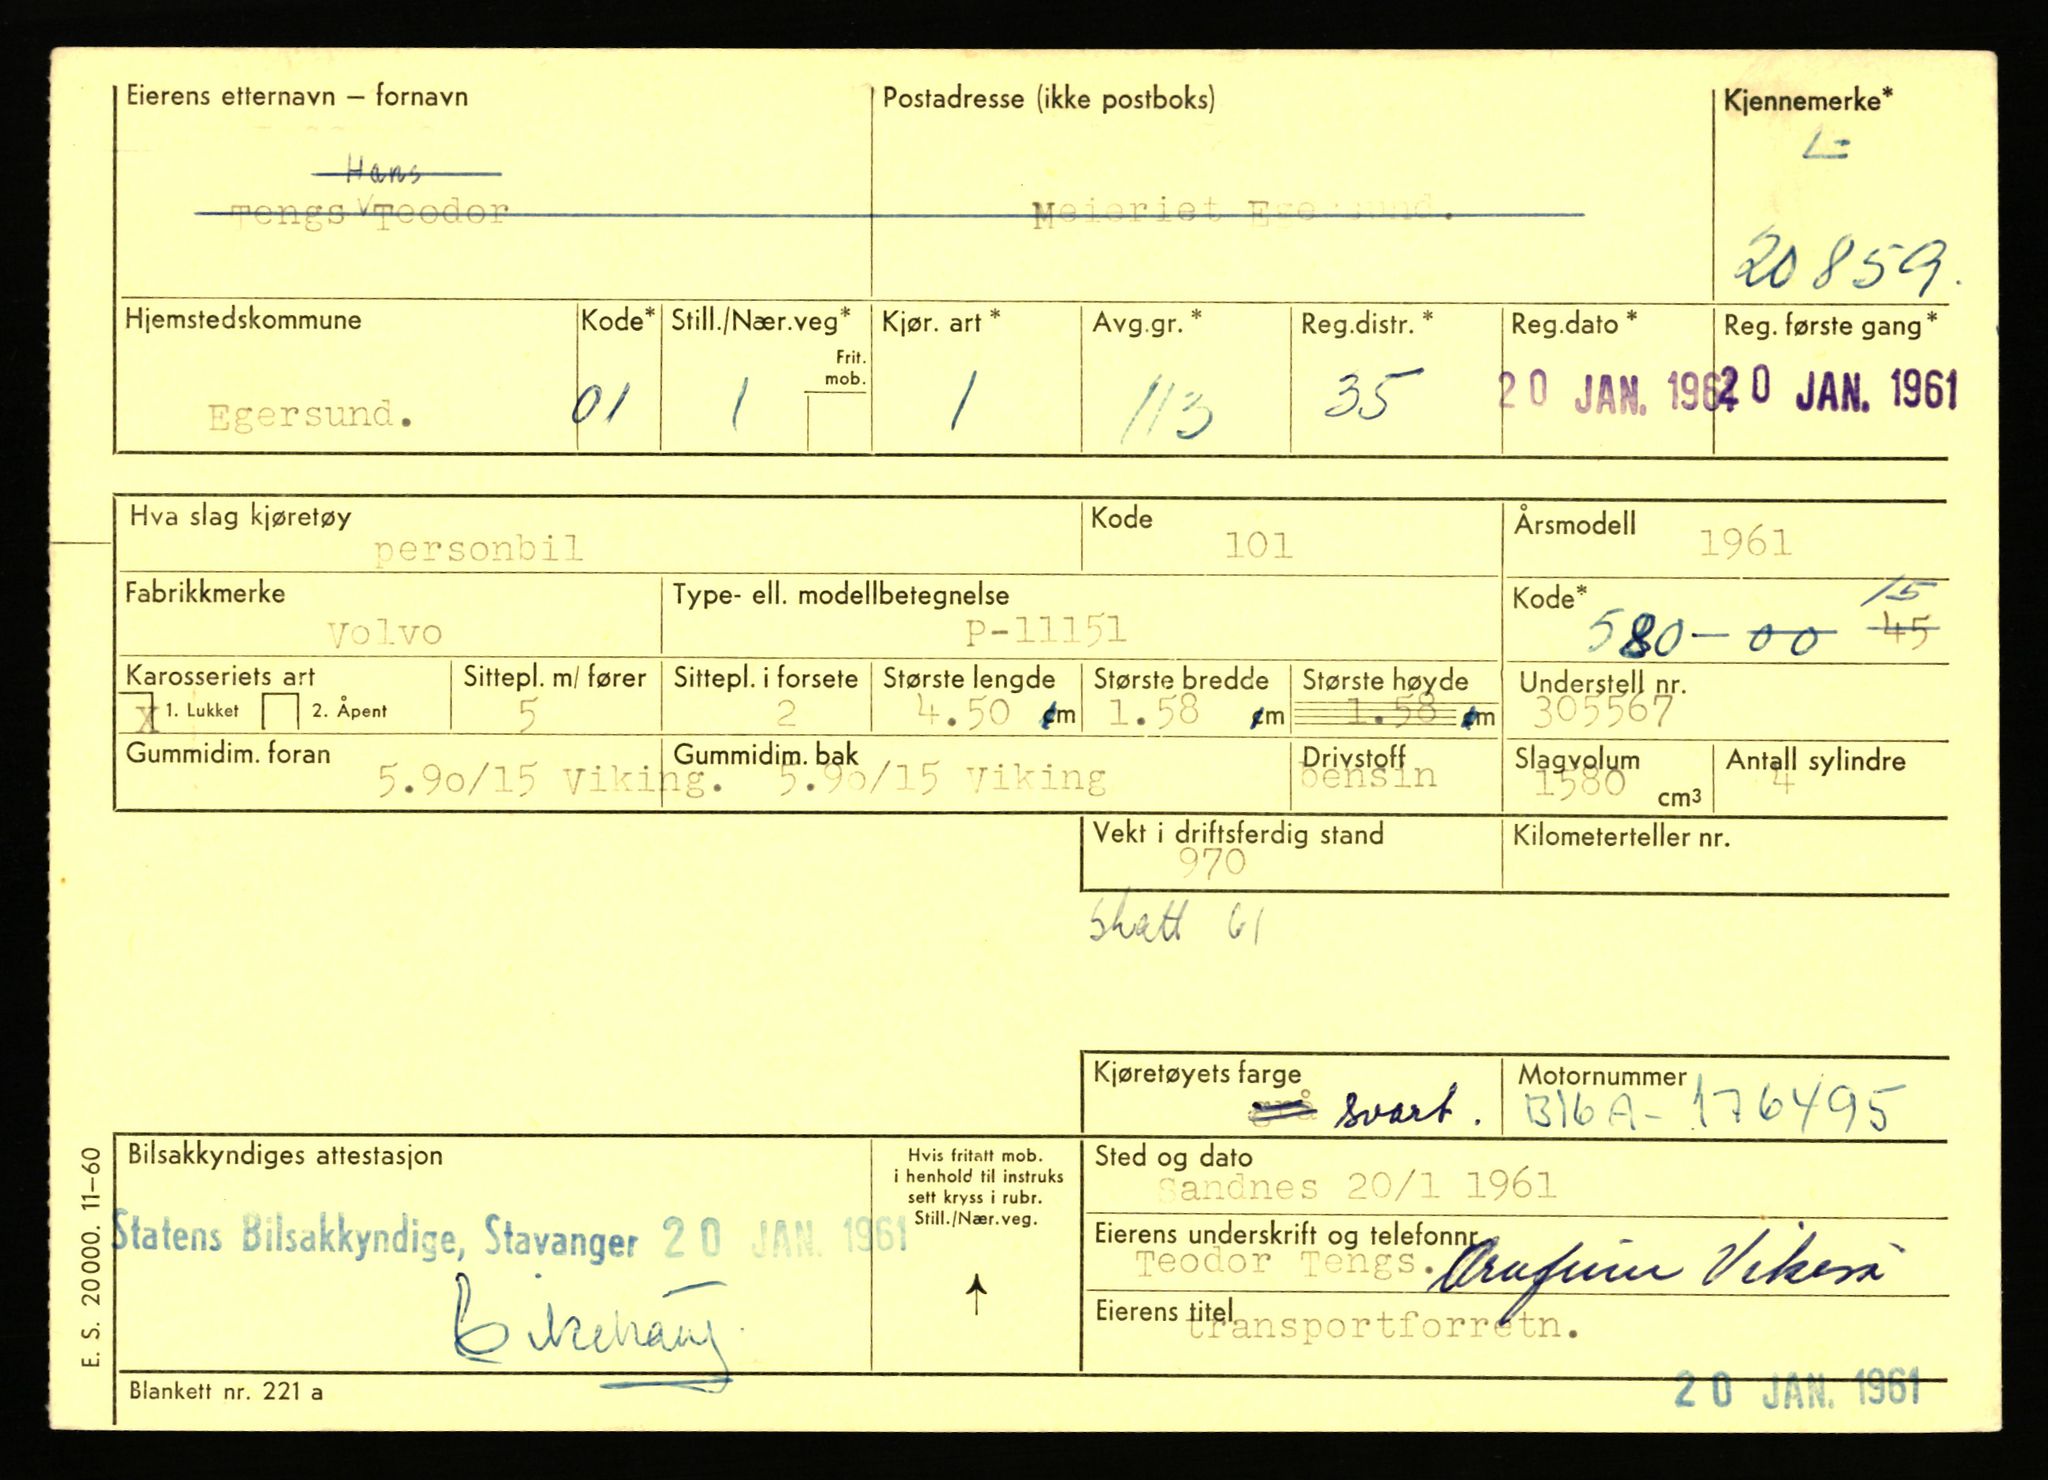 Eierens etternavn – fornavn Postadresse (ikke postboks) Kjennemerke*
L-
Hans
Tengs Teodor Meieriet Egersund.
20859.
Hjemstedskommune Kode* Still./Nær.veg* Kjør. art * Avg.gr. * Reg.distr. * Reg.dato * Reg. første gang *
Frit.
mob.
Egersund. 01 1 1 113 35 20 JAN. 1961 20 JAN. 1961
Hva slag kjøretøy Kode Årsmodell
personbil 101 1961
Fabrikkmerke Type- ell. modellbetegnelse Kode*
15
Volvo P-11151 580-00 45
Karosseriets art Sittepl. m/ fører Sittepl. i forsete Største lengde Største bredde Største høyde Understell nr.
X 1. Lukket 2. Åpent 5 2 4.50 cm 1.58 cm 1.58 cm 305567
Gummidim. foran Gummidim. bak Drivstoff Slagvolum Antall sylindre
5.9o/15 Viking. 5.9o/15 Viking bensin 1580 cm3 4
Vekt i driftsferdig stand Kilometerteller nr.
970
Skatt 61
Kjøretøyets farge Motornummer
grå svart. B16A-176495
Bilsakkyndiges attestasjon
Hvis fritatt mob.
i henhold til instruks
sett kryss i rubr.
Still./Nær.veg.
Sted og dato
Sandnes 20/1 1961
Statens Bilsakkyndige, Stavanger 20 JAN. 1961
Eierens underskrift og telefonnr.
Teodor Tengs.
Eierens titel
transportforretn.
20 JAN. 1961
Blankett nr. 221 a
E. S. 20000. 11–60